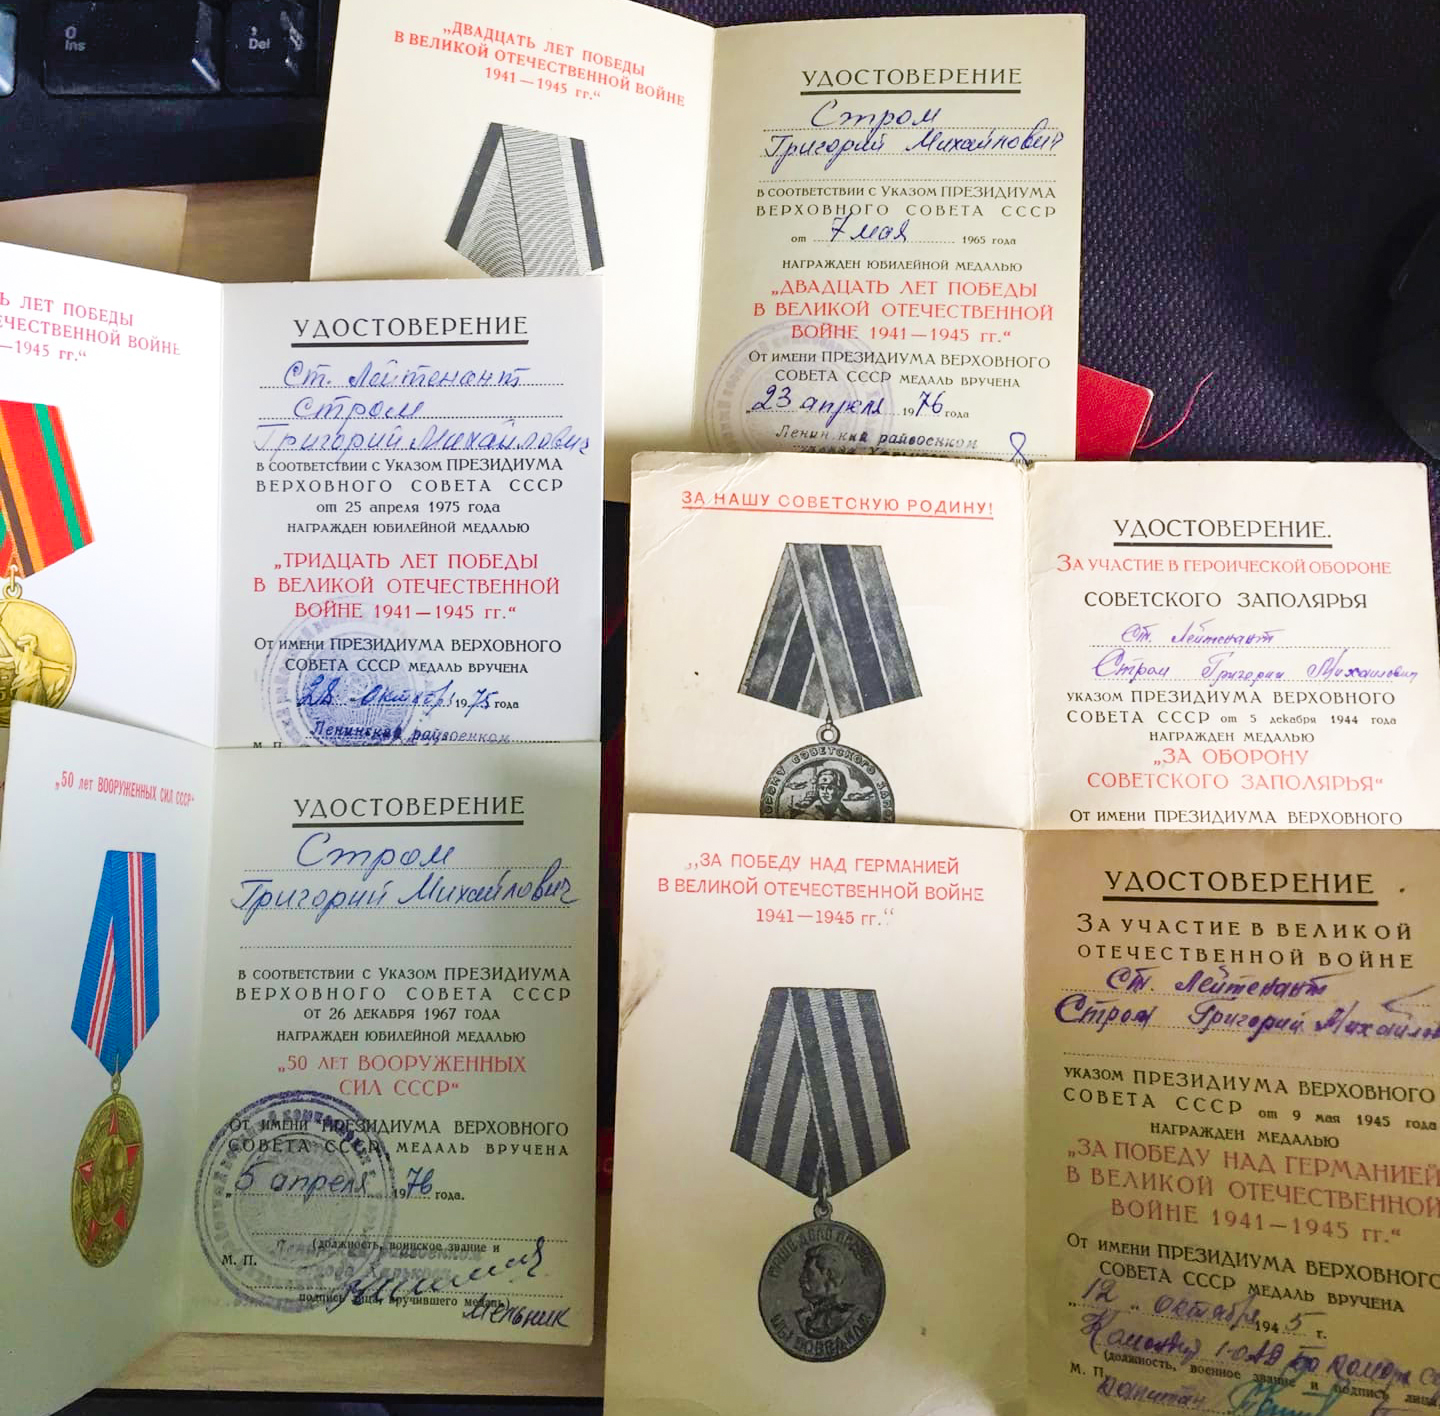 0
Ins
Del
„ДВАДЦАТЬ ЛЕТ ПОБЕДЫ
В ВЕЛИКОЙ ОТЕЧЕСТВЕННОЙ ВОЙНЕ
1941—1945 гг.“
УДОСТОВЕРЕНИЕ
Стром
Григорий Михайлович
В СООТВЕТСТВИИ С УКАЗОМ ПРЕЗИДИУМА
ВЕРХОВНОГО СОВЕТА СССР
от 7 мая 1965 года
НАГРАЖДЕН ЮБИЛЕЙНОЙ МЕДАЛЬЮ
„ДВАДЦАТЬ ЛЕТ ПОБЕДЫ
В ВЕЛИКОЙ ОТЕЧЕСТВЕННОЙ
ВОЙНЕ 1941—1945 гг.“
От имени ПРЕЗИДИУМА ВЕРХОВНОГО
СОВЕТА СССР МЕДАЛЬ ВРУЧЕНА
23 апреля 1976 года
райвоенком
ЛЕТ ПОБЕДЫ
1945 гг.“
УДОСТОВЕРЕНИЕ
Ст. Лейтенант
Стром
Григорий Михайлович
В СООТВЕТСТВИИ С УКАЗОМ ПРЕЗИДИУМА
ВЕРХОВНОГО СОВЕТА СССР
от 25 апреля 1975 года
НАГРАЖДЕН ЮБИЛЕЙНОЙ МЕДАЛЬЮ
„ТРИДЦАТЬ ЛЕТ ПОБЕДЫ
В ВЕЛИКОЙ ОТЕЧЕСТВЕННОЙ
ВОЙНЕ 1941—1945 гг.“
От имени ПРЕЗИДИУМА ВЕРХОВНОГО
СОВЕТА СССР МЕДАЛЬ ВРУЧЕНА
28 1975 года
Ленинский райвоенком
М. П.
ЗА НАШУ СОВЕТСКУЮ РОДИНУ!
УДОСТОВЕРЕНИЕ.
ЗА УЧАСТИЕ В ГЕРОИЧЕСКОЙ ОБОРОНЕ
СОВЕТСКОГО ЗАПОЛЯРЬЯ
Ст. Лейтенант
Стром Григорий Михайлович
УКАЗОМ ПРЕЗИДИУМА ВЕРХОВНОГО
СОВЕТА СССР от 5 декабря 1944 года
НАГРАЖДЕН МЕДАЛЬЮ
„ЗА ОБОРОНУ
СОВЕТСКОГО ЗАПОЛЯРЬЯ“
От имени ПРЕЗИДИУМА ВЕРХОВНОГО
„50 лет ВООРУЖЕННЫХ СИЛ СССР“
УДОСТОВЕРЕНИЕ
Стром
Григорий Михайлович
В СООТВЕТСТВИИ С УКАЗОМ ПРЕЗИДИУМА
ВЕРХОВНОГО СОВЕТА СССР
ОТ 26 ДЕКАБРЯ 1967 ГОДА
НАГРАЖДЕН ЮБИЛЕЙНОЙ МЕДАЛЬЮ
„50 ЛЕТ ВООРУЖЕННЫХ
СИЛ СССР“
От имени ПРЕЗИДИУМА ВЕРХОВНОГО
СОВЕТА СССР МЕДАЛЬ ВРУЧЕНА
„5 апреля 1976 года.
(должность, воинское звание и
М. П.
подпись лица, вручившего медаль)
Мельник
„ЗА ПОБЕДУ НАД ГЕРМАНИЕЙ
В ВЕЛИКОЙ ОТЕЧЕСТВЕННОЙ ВОЙНЕ
1941—1945 гг.“
НАШЕ ДЕЛО ПРАВОЕ
МЫ ПОБЕДИЛИ
УДОСТОВЕРЕНИЕ
ЗА УЧАСТИЕ В ВЕЛИКОЙ
ОТЕЧЕСТВЕННОЙ ВОЙНЕ
Ст. Лейтенант
Стром Григорий
УКАЗОМ ПРЕЗИДИУМА ВЕРХОВНОГО
СОВЕТА СССР от 9 мая 1945 года
НАГРАЖДЕН МЕДАЛЬЮ
„ЗА ПОБЕДУ НАД ГЕРМАНИЕЙ
В ВЕЛИКОЙ ОТЕЧЕСТВЕННОЙ
ВОЙНЕ 1941—1945 гг.“
От имени ПРЕЗИДИУМА ВЕРХОВНОГО
СОВЕТА СССР МЕДАЛЬ ВРУЧЕНА
„12 октября 1945 г.
(должность, военное звание и подпись лица
М. П.